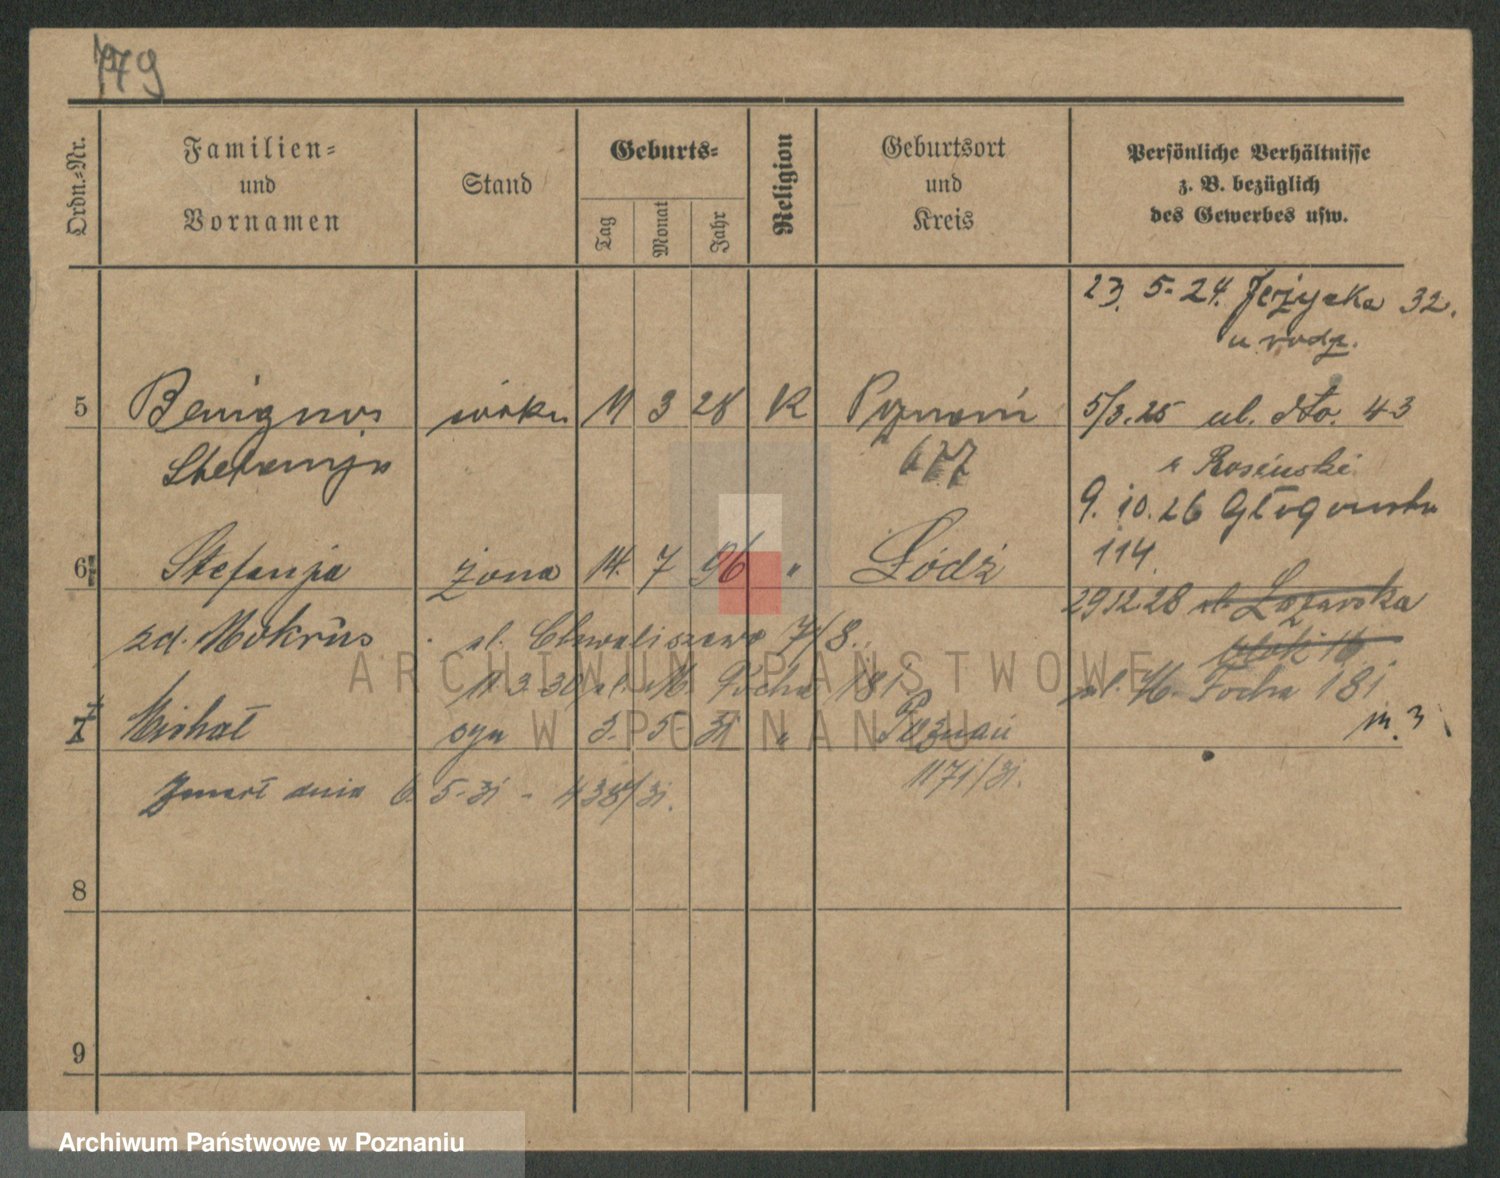 779
Ordn.-Nr.
Familien-
und
Vornamen
Stand
Geburts-
Tag
Monat
Jahr
Religion
Geburtsort
und
Kreis
Persönliche Verhältnisse
z. B. bezüglich
des Gewerbes usw.
23. 5-24. Jeżycka 32.
u rodz.
5 Benigna córka 11 3 28 K Poznań
5/3.25 ul. 43
677
Rosiński
9. 10. 26 Głogowska
114.
6 Stefanja żona 14. 7 96 " Łódź
29 12 28 Łazarska
16
zd. Mokrus ul. Chwaliszewo 7/8.
11. 3. 30 ul. M. Focha 181
ul. M. Focha 181
m. 3
7 Michał syn 3. 5- 31 " Poznań
1171/31.
Zmarł dnia 6. 5-31 - 438/31.
8
9
ARCHIWUM PAŃSTWOWE
W POZNANIU
Archiwum Państwowe w Poznaniu